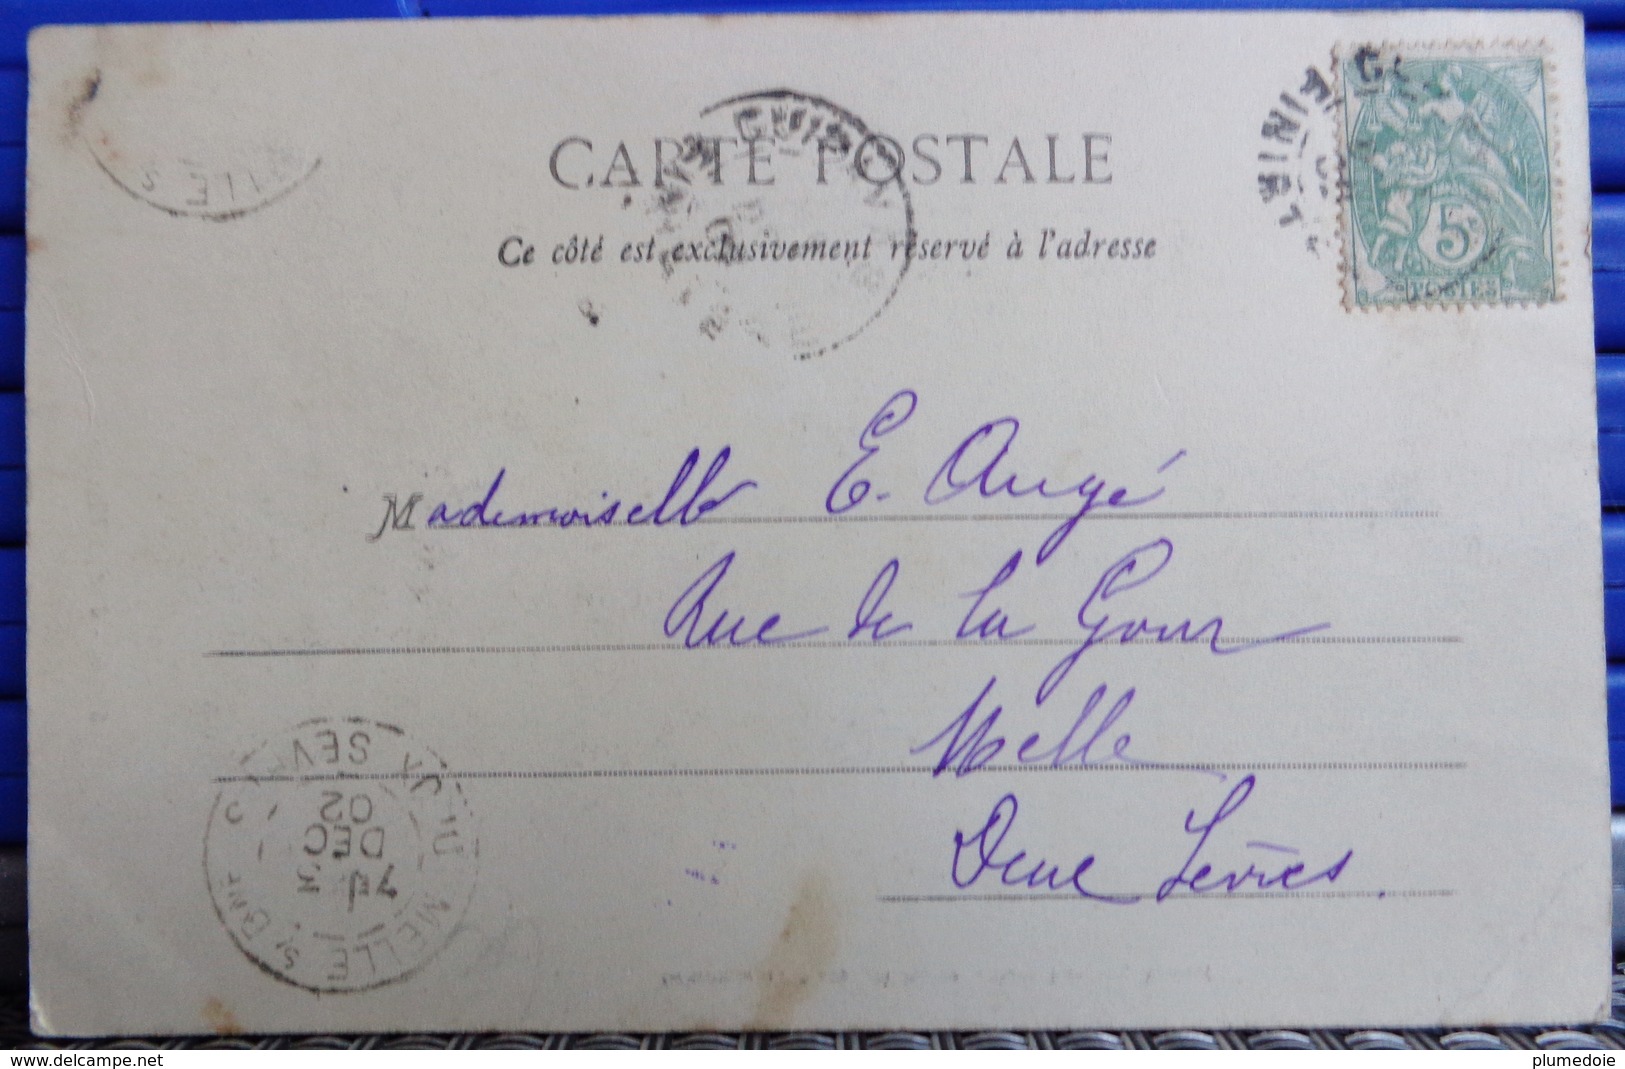 CARTE POSTALE
Ce côté est exclusivement réservé à l'adresse
5c
POSTES
Mademoiselle E. Augé
Rue de la Gour
Melle
Deux Sèvres.
MELLE
DEC
02
www.delcampe.net
plumedoie